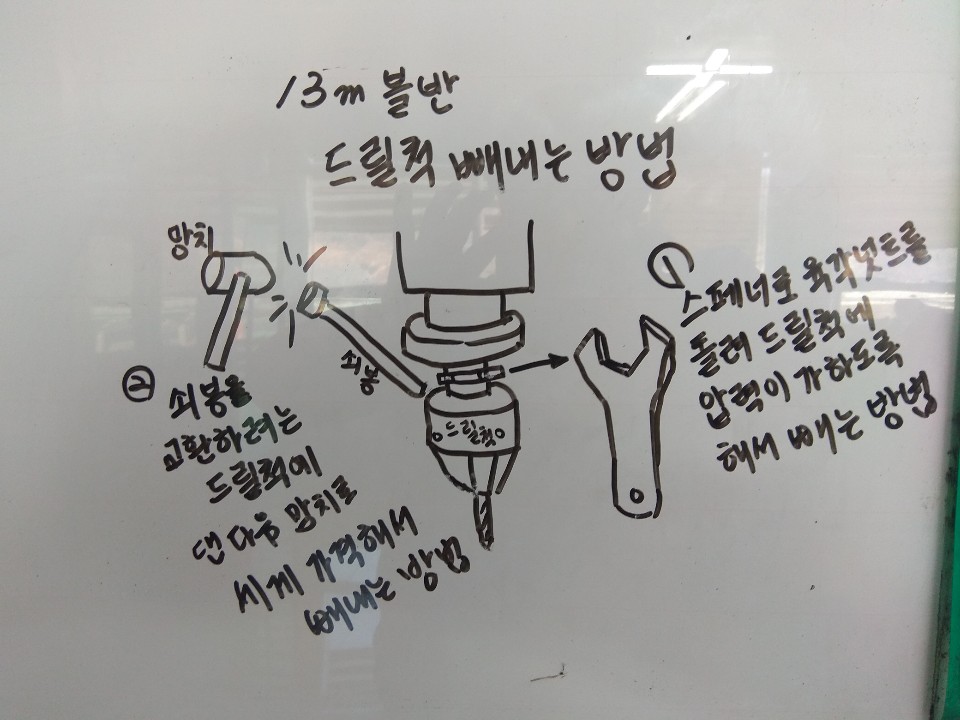 13m 볼반
드릴척 빼내는 방법
망치
쇠봉
드릴척
①
스페너로 육각넛트를
돌려 드릴척에
압력이 가하도록
해서 빼는 방법
② 쇠봉을
교환하려는
드릴척에
댄 다음 망치로
세게 가격해서
빼내는 방법